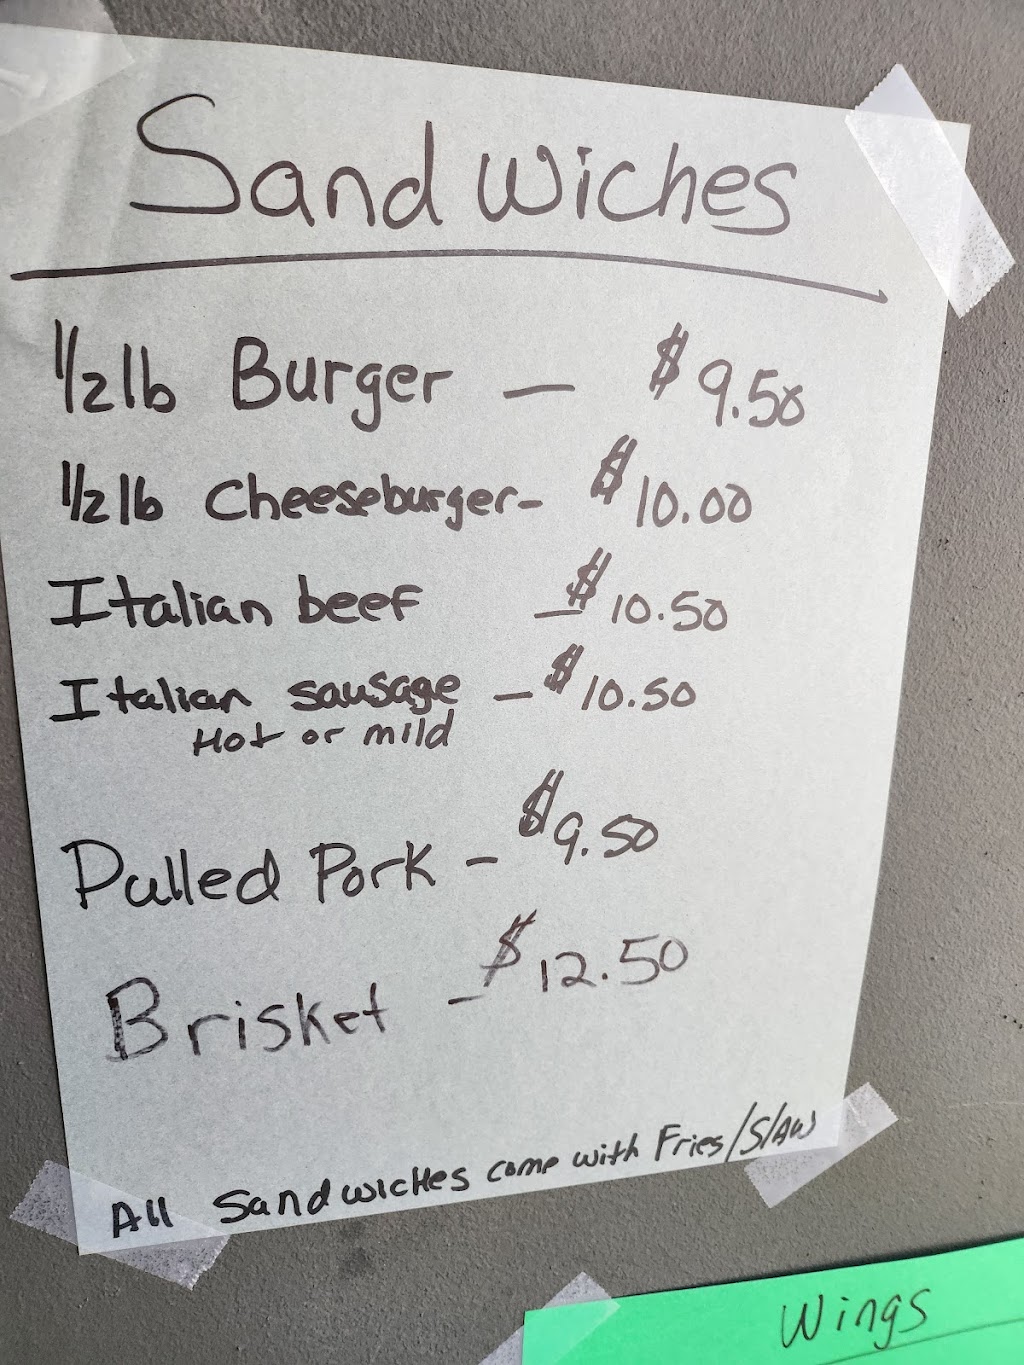 Sandwiches
1/2 lb Burger — $9.50
1/2 lb Cheeseburger - $10.00
Italian beef — $10.50
Italian sausage — $10.50
Hot or mild
Pulled Pork - $9.50
Brisket - $12.50
All Sandwiches come with Fries/Slaw
Wings